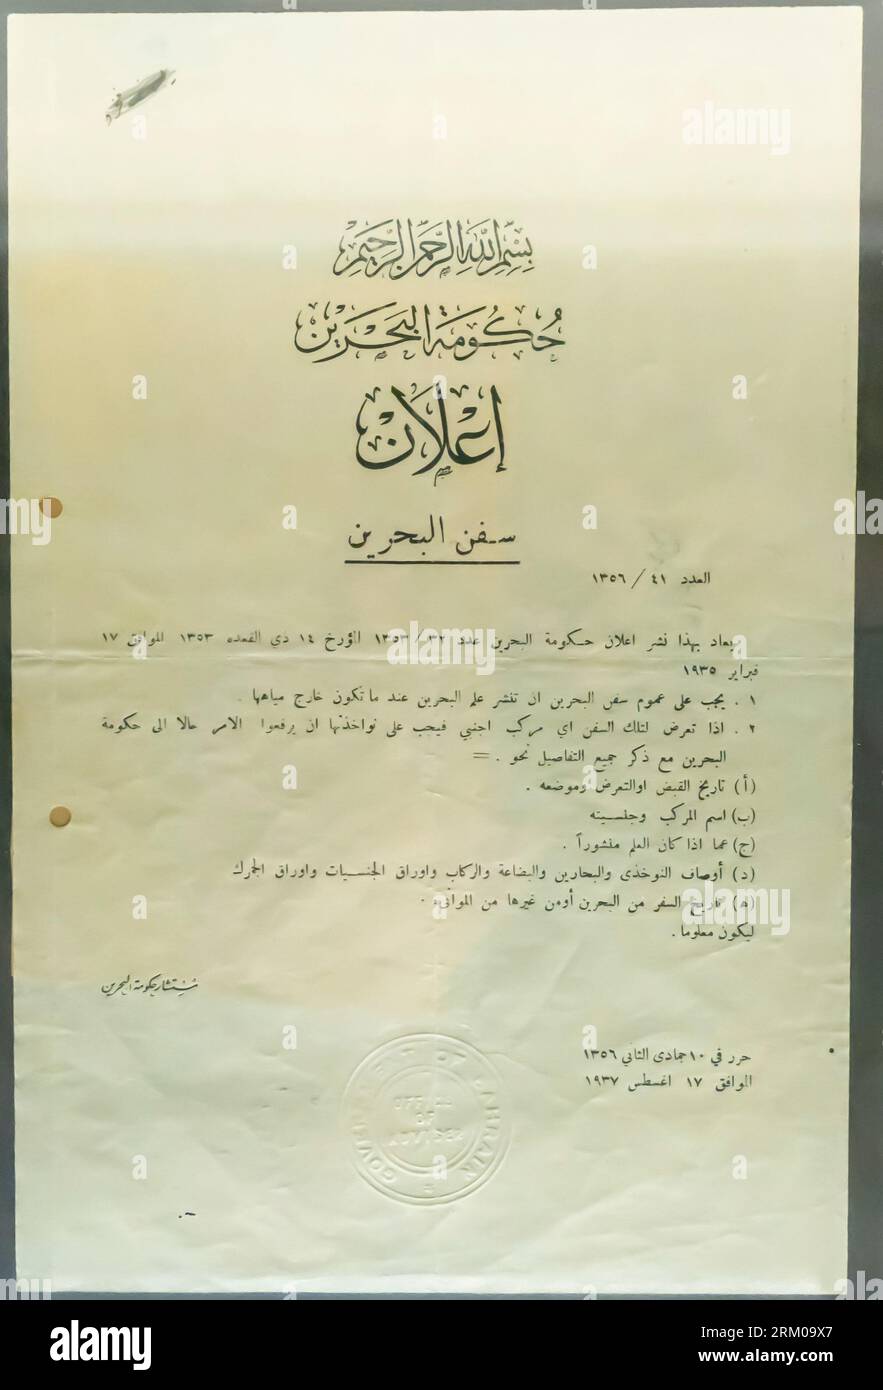 بِسْمِ اللهِ الرَّحْمَنِ الرَّحِيمِ
حُكُومَة البَحْرَيْن
إعْلَان
سفن البحرين
العدد ٤١ / ١٣٥٦
يعاد بهذا نشر اعلان حكومة البحرين عدد ٣٢ / ١٣٥٣ المؤرخ ١٤ ذي القعده ١٣٥٣ الموافق ١٧
فبراير ١٩٣٥
١ . يجب على عموم سفن البحرين ان تنشر علم البحرين عند ما تكون خارج مياهها .
٢ . اذا تعرض لتلك السفن اي مركب اجنبي فيجب على نواخذتها ان يرفعوا الامر حالا الى حكومة
البحرين مع ذكر جميع التفاصيل نحو . =
(أ) تاريخ القبض اوالتعرض وموضعه .
(ب) اسم المركب وجنسيته
(ج) عما اذا كان العلم منشوراً .
(د) أوصاف النوخذى والبحارين والبضاعة والركاب واوراق الجنسيات واوراق الجمرك
(ه) تاريخ السفر من البحرين أومن غيرها من الموانىء .
ليكون معلوما .
مستشار حكومة البحرين
حرر في ١٠ جمادى الثاني ١٣٥٦
الموافق ١٧ اغسطس ١٩٣٧
GOVERNMENT OF BAHRAIN
OFFICE
OF
ADVISER
alamy
Image ID: 2RM09X7
www.alamy.com